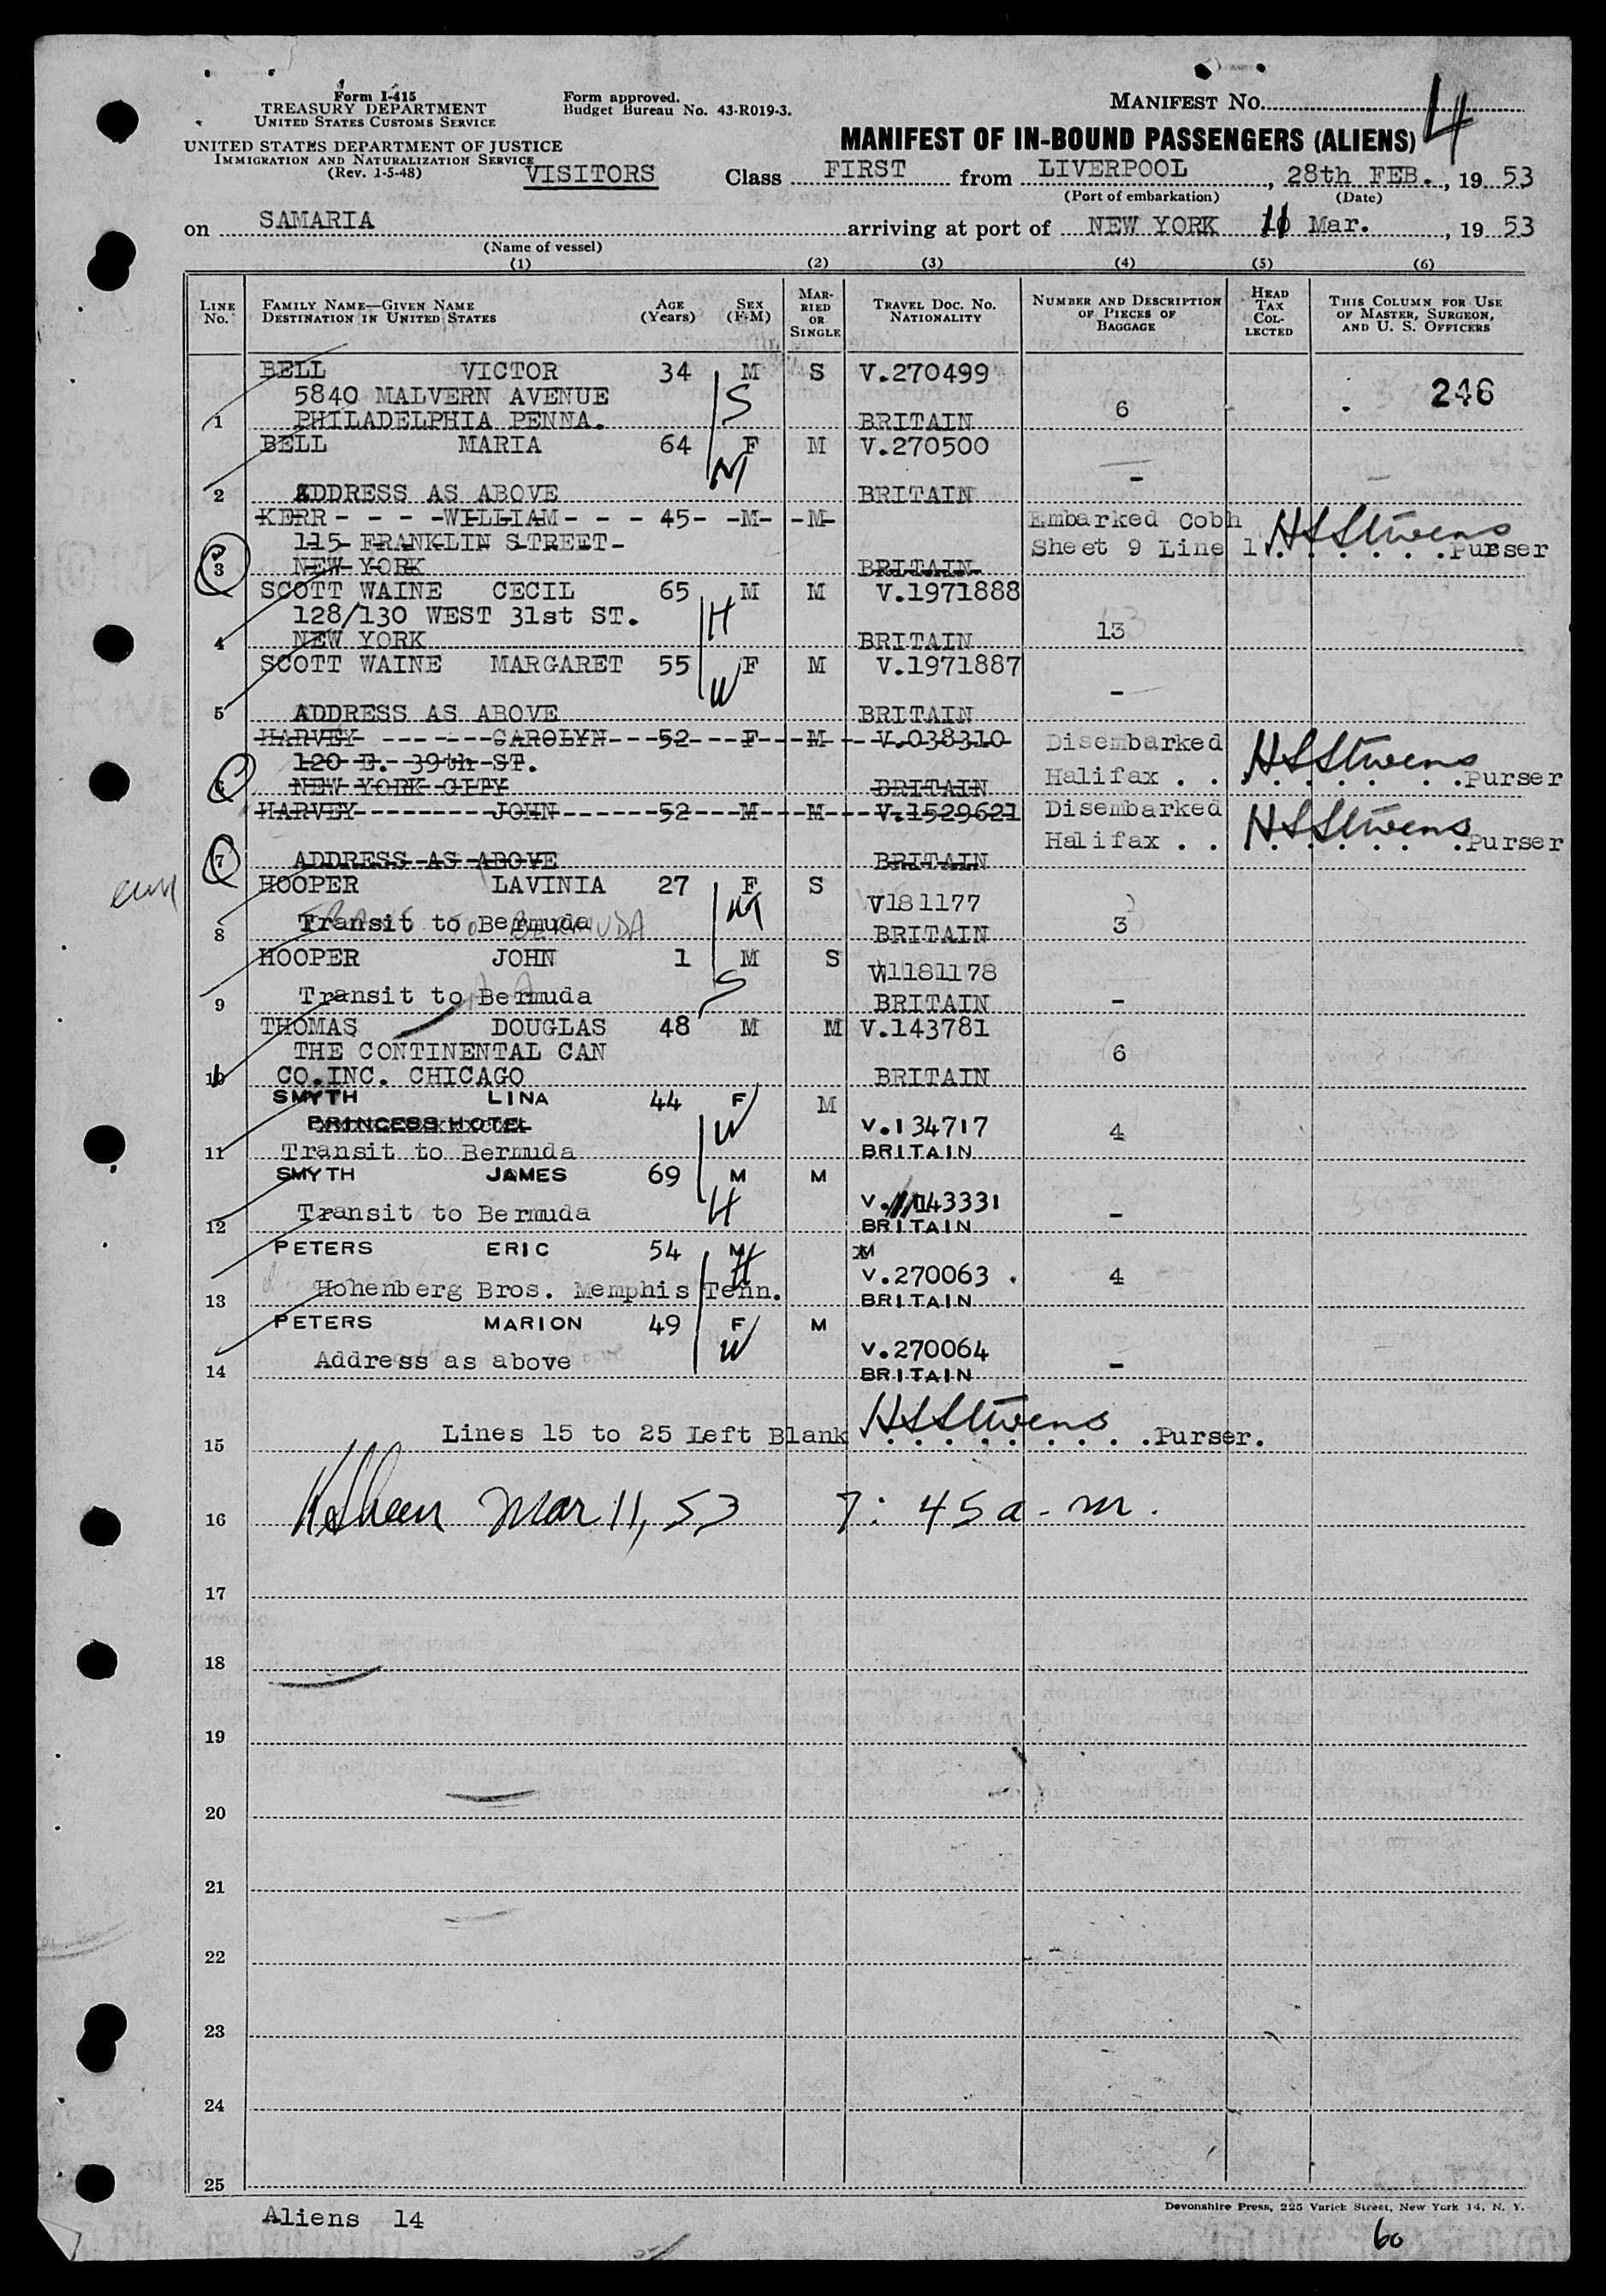 Form I-415
TREASURY DEPARTMENT
UNITED STATES CUSTOMS SERVICE
UNITED STATES DEPARTMENT OF JUSTICE
IMMIGRATION AND NATURALIZATION SERVICE
(Rev. 1-5-48)
Form approved.
Budget Bureau No. 43-R019-3.
MANIFEST NO. 4
MANIFEST OF IN-BOUND PASSENGERS (ALIENS)
VISITORS Class FIRST from LIVERPOOL, 28th FEB., 19 53
(Port of embarkation) (Date)
on SAMARIA arriving at port of NEW YORK 11 Mar., 19 53
(Name of vessel)
(1) (2) (3) (4) (5) (6)
LINE No. FAMILY NAME—GIVEN NAME DESTINATION IN UNITED STATES AGE (Years) SEX (F-M) MARRIED OR SINGLE TRAVEL DOC. NO. NATIONALITY NUMBER AND DESCRIPTION OF PIECES OF BAGGAGE HEAD TAX COLLECTED THIS COLUMN FOR USE OF MASTER, SURGEON, AND U. S. OFFICERS
BELL VICTOR 34 M S V.270499 246
5840 MALVERN AVENUE S 6
1 PHILADELPHIA PENNA. BRITAIN
BELL MARIA 64 F M V.270500
M -
2 ADDRESS AS ABOVE BRITAIN
KERR - - - -WILLIAM- - - 45- -M- -M- Embarked Cobh
115 FRANKLIN STREET- Sheet 9 Line 1. HSStivens Purser
3 NEW YORK BRITAIN
SCOTT WAINE CECIL 65 M M V.1971888
128/130 WEST 31st ST. H 13
4 NEW YORK BRITAIN
SCOTT WAINE MARGARET 55 F M V.1971887
W -
5 ADDRESS AS ABOVE BRITAIN
HARVEY CAROLYN 52 F M V.038310 Disembarked
120 E. 39th ST. Halifax . . HSStivens Purser
6 NEW YORK CITY BRITAIN
HARVEY JOHN 52 M M V.1529621 Disembarked
Halifax . . HSStivens Purser
7 ADDRESS AS ABOVE BRITAIN
HOOPER LAVINIA 27 F S V181177
M
8 Transit to Bermuda BRITAIN 3
HOOPER JOHN 1 M S V1181178
S
9 Transit to Bermuda BRITAIN -
THOMAS DOUGLAS 48 M M V.143781
THE CONTINENTAL CAN 6
10 CO.INC. CHICAGO BRITAIN
SMYTH LINA 44 F M
PRINCESS HOTEL W V.134717 4
11 Transit to Bermuda BRITAIN
SMYTH JAMES 69 M M
H V.143331
12 Transit to Bermuda BRITAIN -
PETERS ERIC 54 M M
H V.270063 . 4
13 Hohenberg Bros. Memphis Tenn. BRITAIN
PETERS MARION 49 F M
W V.270064
14 Address as above BRITAIN -
15 Lines 15 to 25 Left Blank HSStivens Purser.
16 Mar 11, 53 7:45 a.m.
17
18
19
20
21
22
23
24
25
Aliens 14
Devonshire Press, 225 Varick Street, New York 14, N. Y.
60